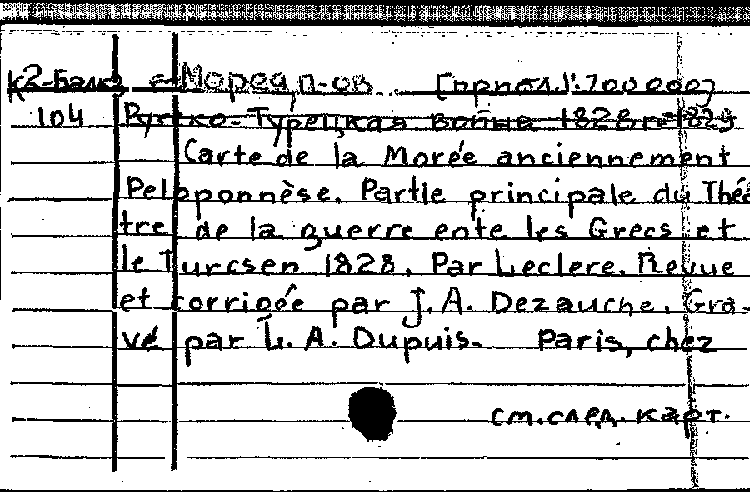 К2-Балк Морея, п-ов. [прибл.1:700 000]
104 Русско-Турецкая война 1828-1829
Carte de la Morée anciennement
Peloponnèse. Partie principale du Théâ
tre de la guerre ente les Grecs et
le Turcsen 1828. Par Leclere. Revue
et corrigée par J.A. Dezauche. Gra-
vé par L. A. Dupuis. Paris, chez
см. след. карт.